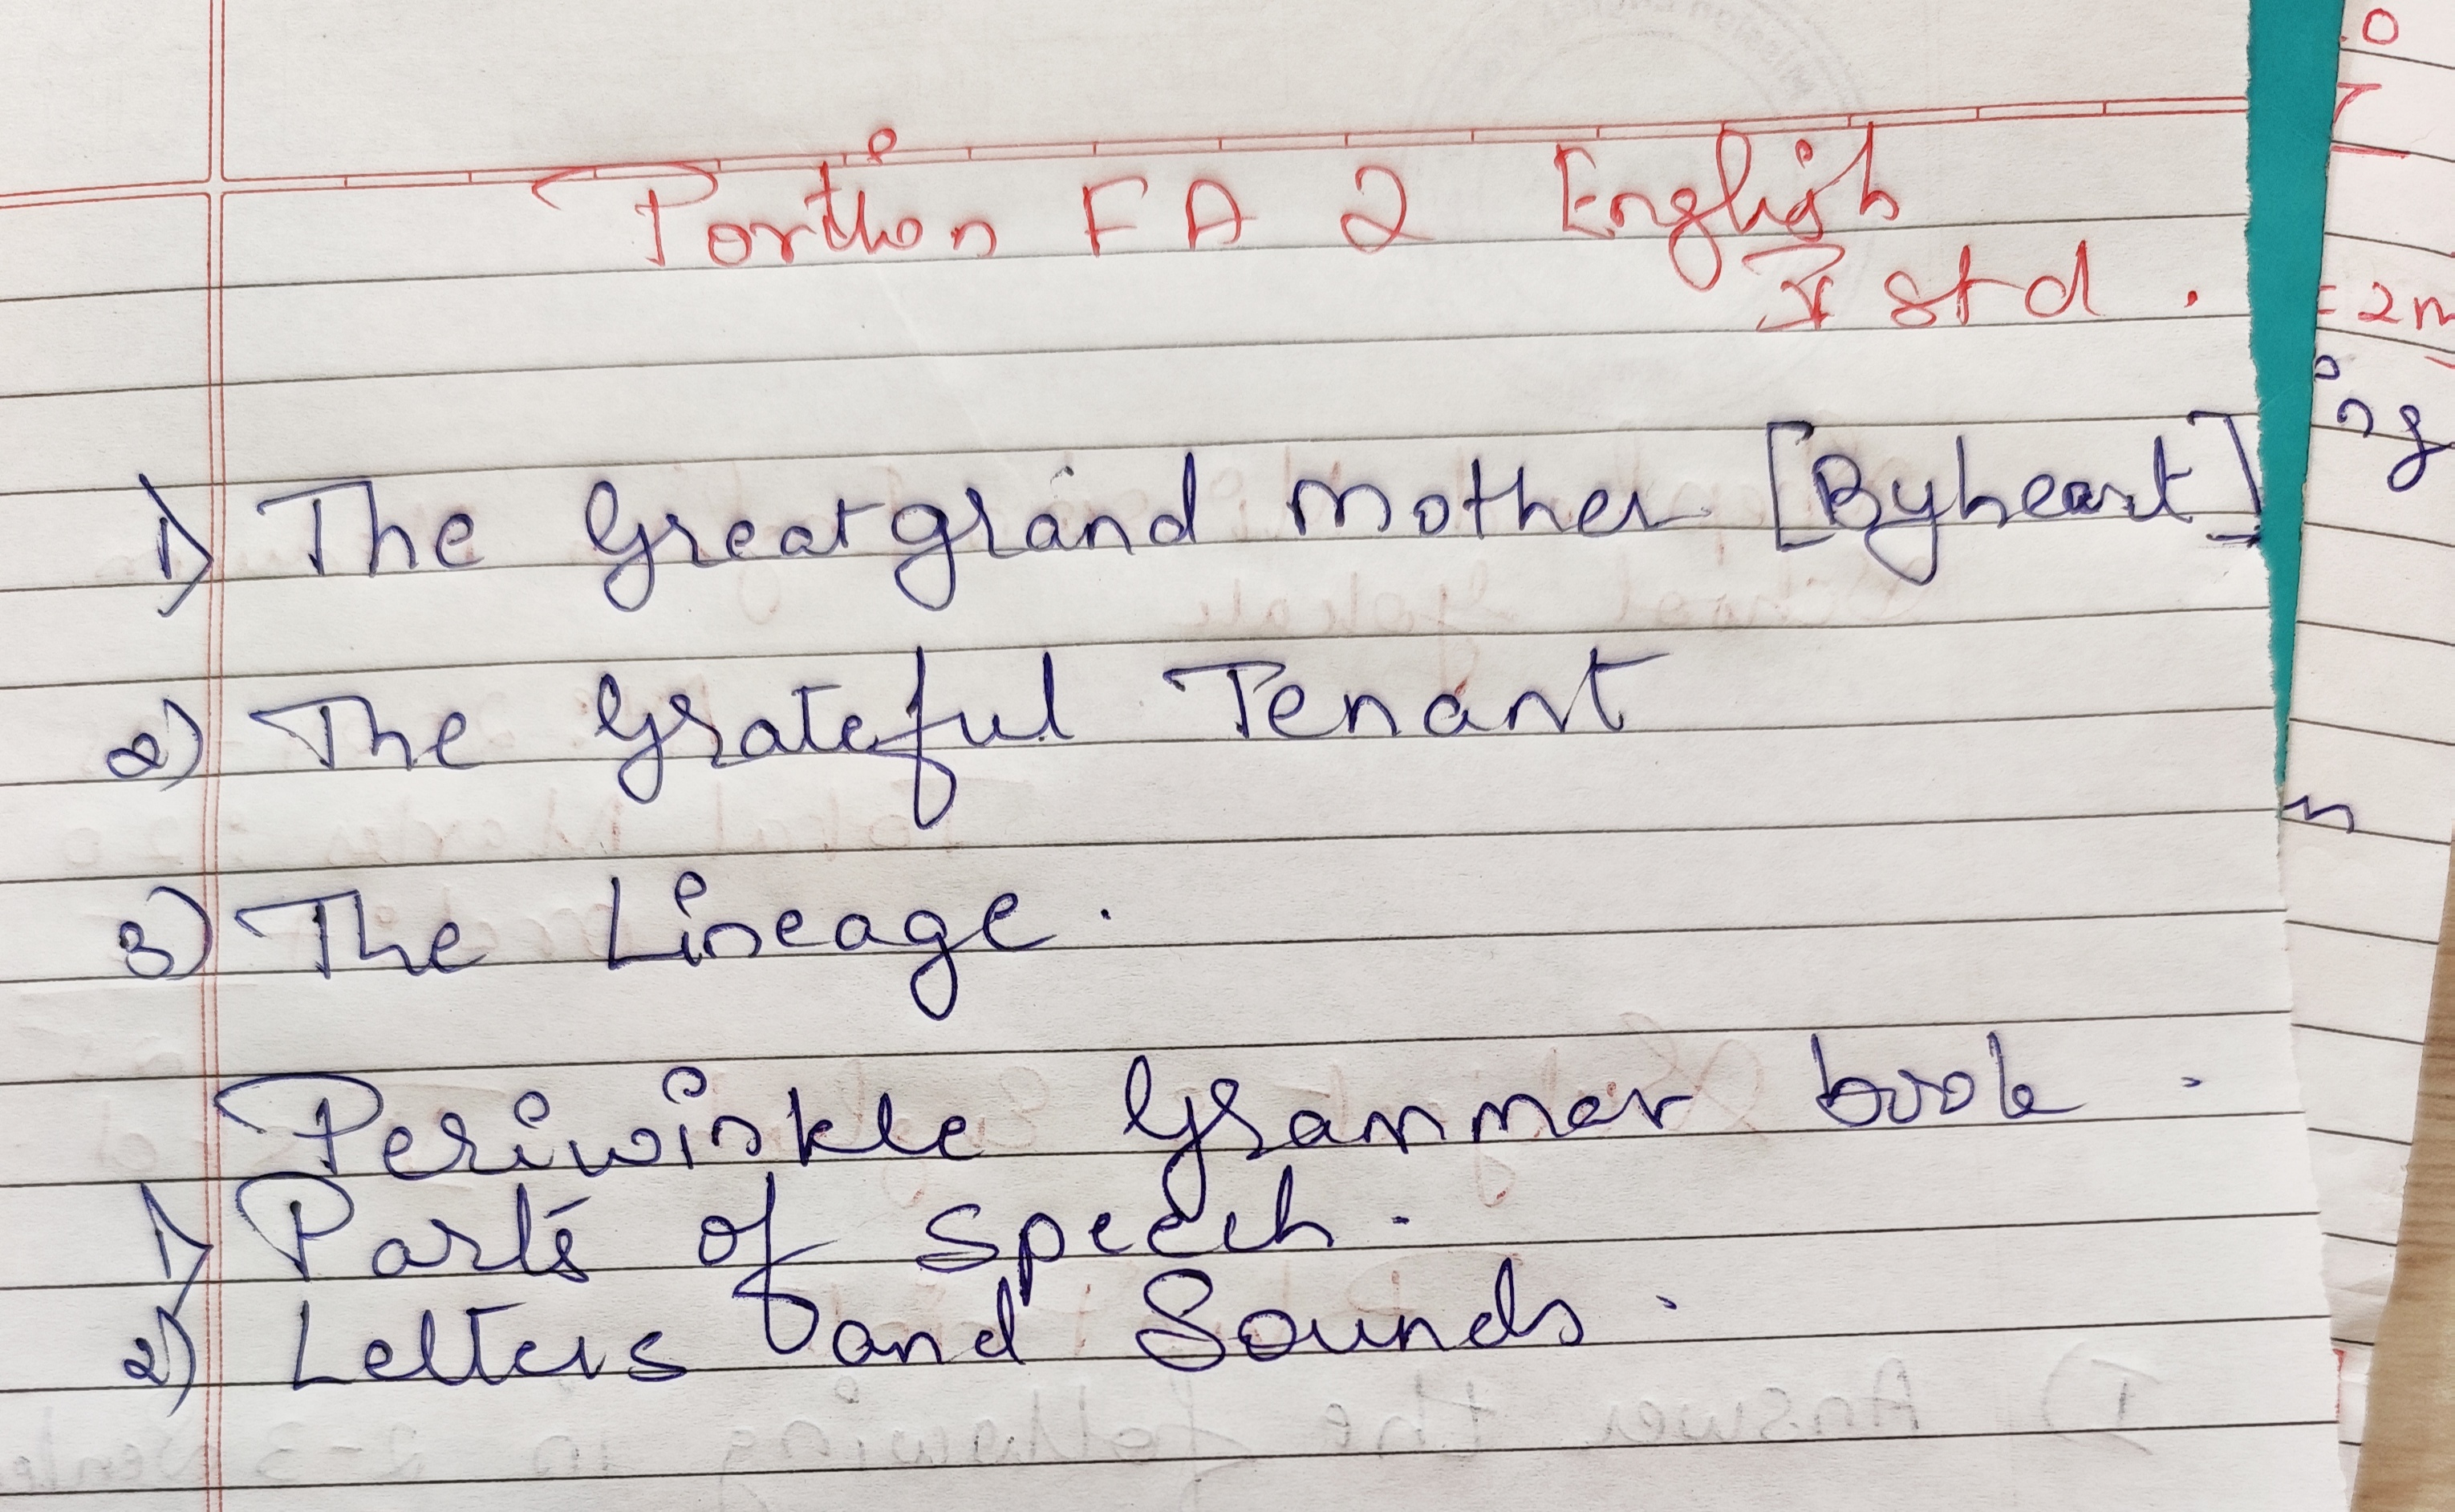 Portion FA 2 English
std.
1) The Greatgrand mother [Byheart]
2) The Grateful Tenant
3) The Lineage.
Periwinkle Grammar book.
1) Parts of speech.
2) Letters and Sounds.